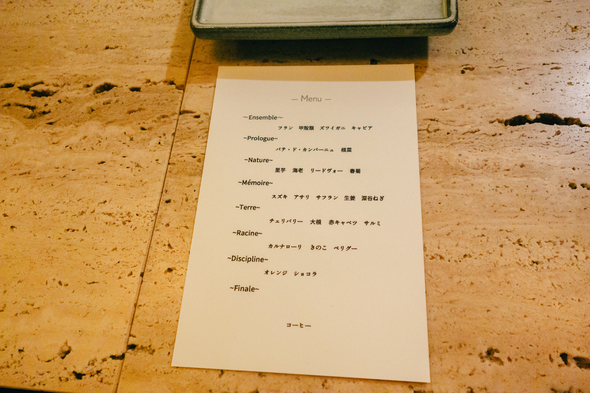 — Menu —
~Ensemble~
フラン 甲殻類 ズワイガニ キャビア
~Prologue~
パテ・ド・カンパーニュ 根菜
~Nature~
里芋 海老 リードヴォー 春菊
~Mémoire~
スズキ アサリ サフラン 生姜 深谷ねぎ
~Terre~
チェリバリー 大根 赤キャベツ サルミ
~Racine~
カルナローリ きのこ ペリグー
~Discipline~
オレンジ ショコラ
~Finale~
コーヒー